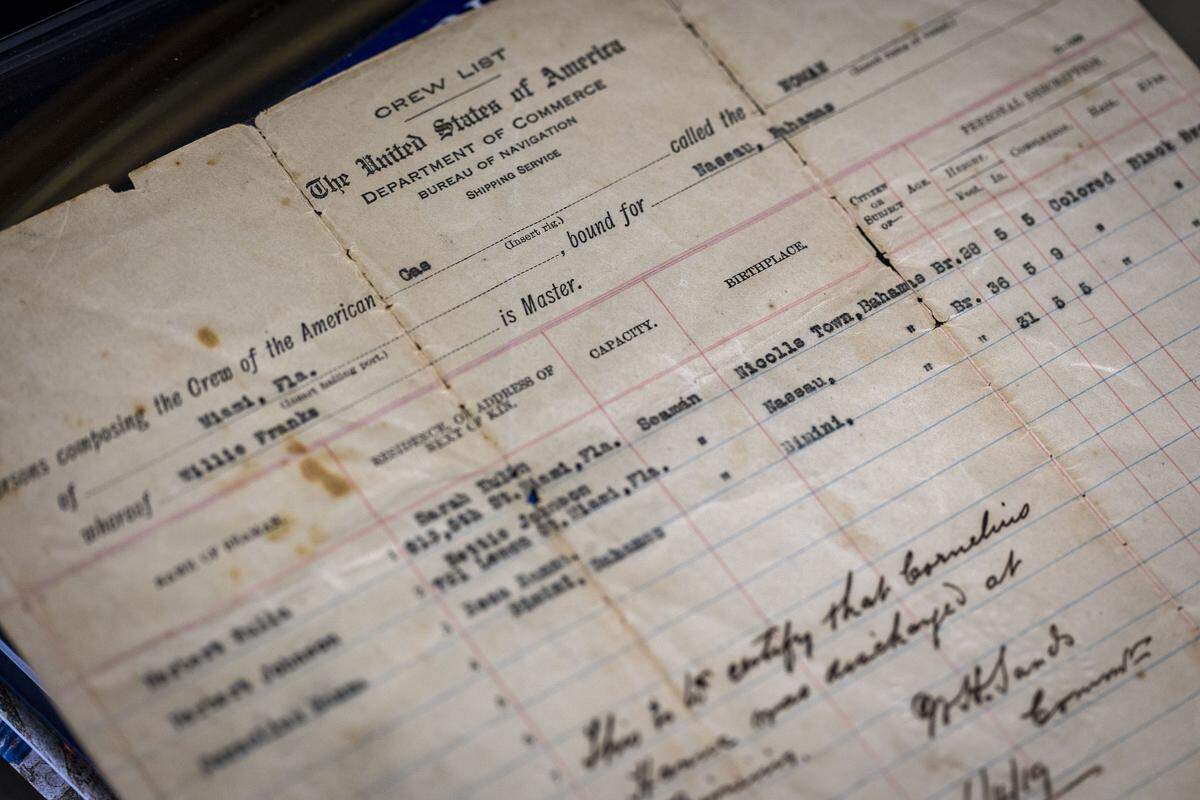 CREW LIST
The United States of America
DEPARTMENT OF COMMERCE
BUREAU OF NAVIGATION
SHIPPING SERVICE
persons composing the Crew of the American Gas called the
(Insert rig.)
of Miami, Fla. , bound for Nassau, Bahamas
(Insert hailing port.)
whereof Willie Franks is Master.
PERSONAL DESCRIPTION
NAME OF SEAMAN RESIDENCE, OR ADDRESS OF NEXT OF KIN. CAPACITY. BIRTHPLACE. CITIZEN OR SUBJECT OF— AGE. HEIGHT. Feet. In. COMPLEXION. HAIR. EYES
Sarah
5th St. Miami, Fla. Seaman Nicolls Town, Bahamas Br. 28 5 5 Colored Black
Herbert Johnson Johnson
St. Miami, Fla. " Nassau, " Br. 36 5 9 " "
" Bimini, " " 31 5 5 "
Bimini, Bahamas
This is to certify that Cornelius
was discharged at
Bimini.
W.H. Sands
Commr